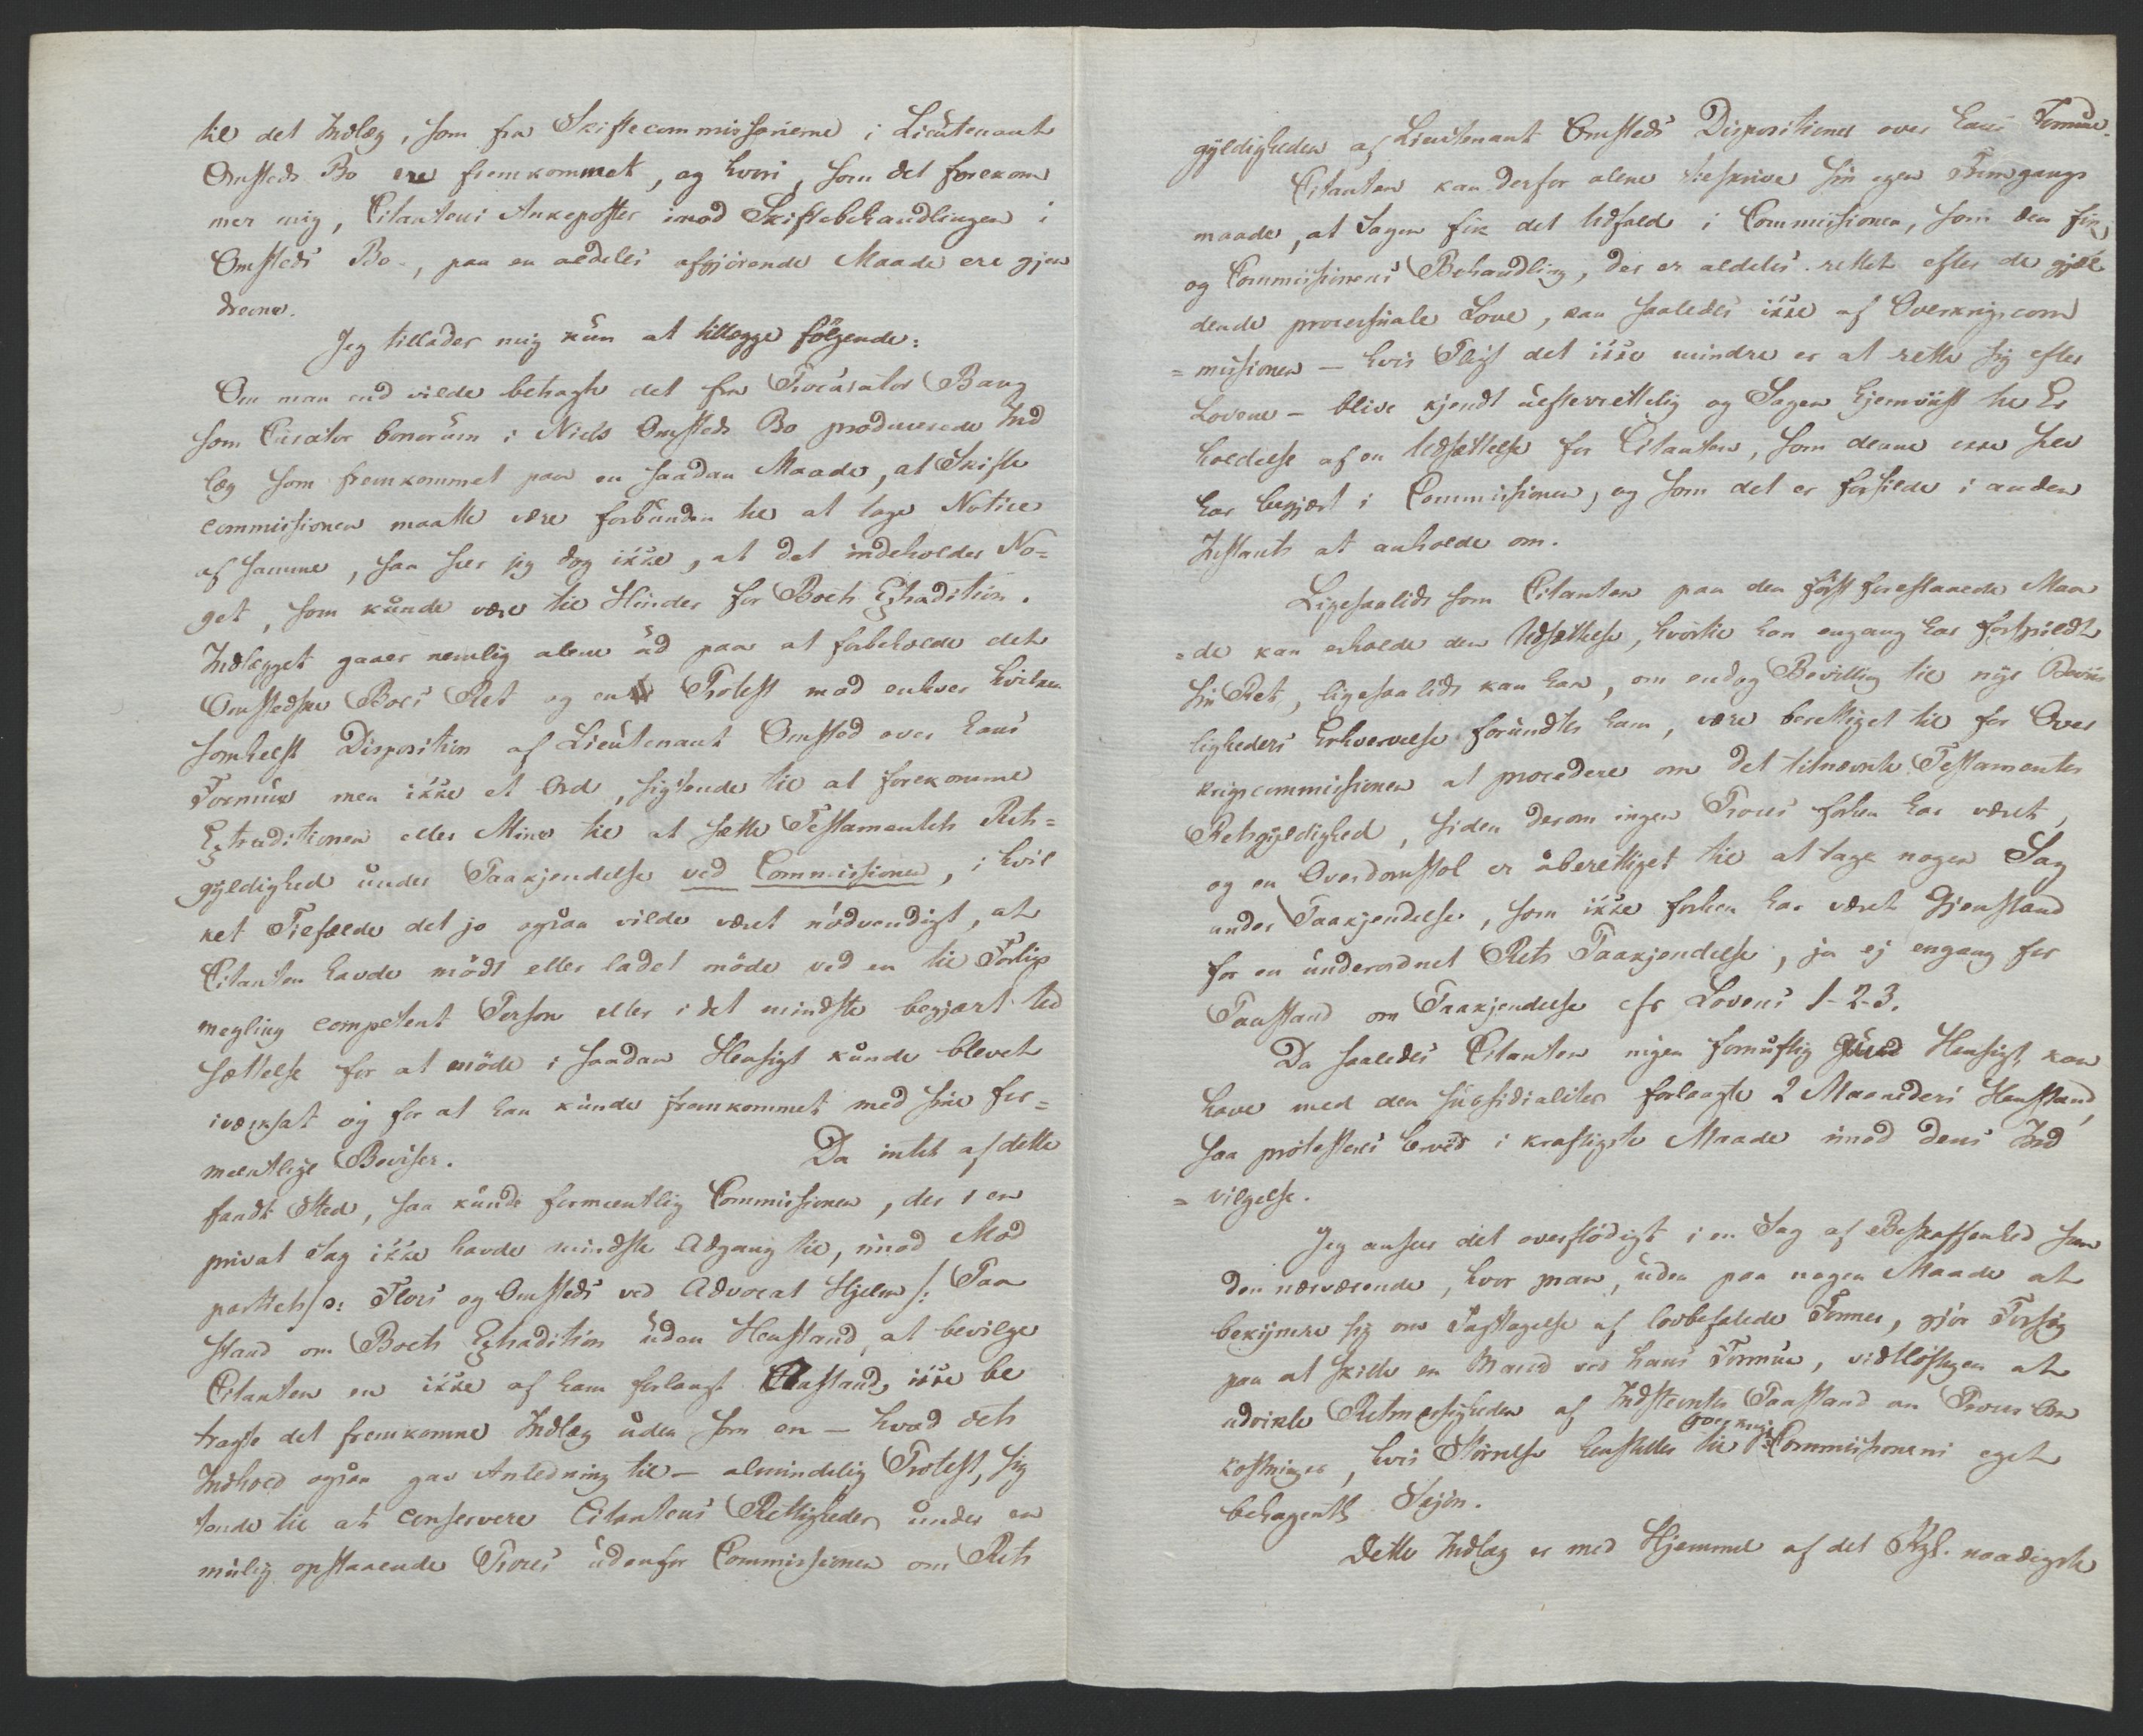 til det Indlæg, som fra Skiftecommissarierne i Lieutenant
Omsteds Bo ere fremkommet, og hvori, som det forekom
mer mig, Citantens Ankeposter imod Skiftebehandlingen i
Omsteds Bo, paa en aldeles afgjörende Maade ere gjen
drevne.
Jeg tillader mig kun at tillægge fölgende:
Om man end vilde betragte det fra Procurator Bang
som Curator bonorum i Niels Omsteds Bo producerede Ind
læg som fremkommet paa en saadan Maade, at Skifte
commissionen maatte være forbunden til at tage Notice
af samme, saa seer jeg dog ikke, at det indeholder No=
get, som kunde være til Hinder for Boets Extradition.
Indlægget gaaer nemlig alene ud paa at forbeholde det
Omstedske Boes Ret og en Protest mod enhver hvilken
somhelst Disposition af Lieutenant Omsted over hans
Formue men ikke et Ord, sigtende til at forekomme
Extraditionen eller Mine til at sætte Testamentets Rets=
gyldighed under Paakjendelse ved Commissionen, i hvil
ket Tilfælde det jo ogsaa vilde været nödvendigt, at
Citanten havde mödt eller ladet möde ved en til Forligs
megling competent Person eller i det mindste begjært Ud
sættelse for at möde i saadan Hensigt kunde blevet
iværksat og for at han kunde fremkommet med sine for=
meentlige Beviser. Da intet af dette
fandt Sted, saa kunde formeentlig Commissionen, der i en
privat Sag ikke havde mindste Adgang til, imod Mod
partens /: Flors og Omsteds ved Advocat Hjelm /: Paa
stand om Boets Extradition uden Henstand, at bevilge
Citanten en ikke af ham forlangt Henstand, ikke be
tragte det fremkomne Indlæg uden som en – hvad dets
Indhold ogsaa gav Anledning til – almindelig Protest, sig
tende til at conservere Citantens Rettigheder under en
mulig opstaaende Proces udenfor Commissionen om Rets
gyldigheden af Lieutenant Omsteds Dispositioner over hans Formue.
Citanten kan derfor alene tilskrive sin egen Fremgangs
maade, at Sagen fik det Udfald i Commissionen, som den fik,
og Commissionens Behandling, der er aldeles rettet efter de gjæl
dende processuale Love, kan saaledes ikke af Overkrigscom
= missionen – hvis Pligt det ikke mindre er at rette sig efter
Lovene – blive kjendt uefterrettelig og Sagen hjemviist til Er
holdelse af en Udsættelse for Citanten, som denne ikke selv
har begjært i Commissionen, og som det er forsilde i anden
Instants at anholde om.
Ligesaalidt som Citanten paa den först forestaaende Maa
= de kan erholde den Udsættelse, hvortil han engang har forspildt
sin Ret, ligesaalidt kan han, om endog Bevilling til nye Beviis
ligheders Erhvervelse forundtes ham, være berettiget til for Over
krigscommissionen at procedere om det titnævnte Testamentes
Retsgyldighed, siden derom ingen Proces forhen har været,
og en Overdomstol er uberettiget til at tage nogen Sag
under Paakjendelse, som ikke forhen har været Gjenstand
for en underordnet Rets Paakjendelse, ja ej engang for
Paastand om Paakjendelse cfr Lovens 1-2-3.
Da saaledes Citanten ingen fornuftig Hensigt kan
have med den subsidialiter forlangte 2 Maaneders Henstand,
saa protesteres herved i kraftigste Maade imod dens Ind
= vilgelse.
Jeg anseer det overflödigt i en Sag af Beskaffenhed som
den nærværende, hvor man, uden paa nogen Maade at
bekymre sig om Iagttagelse af lovbefalede Former, gjör Forsög
paa at skille en Mand ved hans Formue, vidtlöftigen at
udvikle Retmæssigheden af Indstevntes Paastand om Proces Om
kostninger, hvis Störrelse henstilles til Overkrigs Commissionens eget
behagentl. Skjön.
Dette Indlæg er med Hjemmel af det Kgl. naadigste